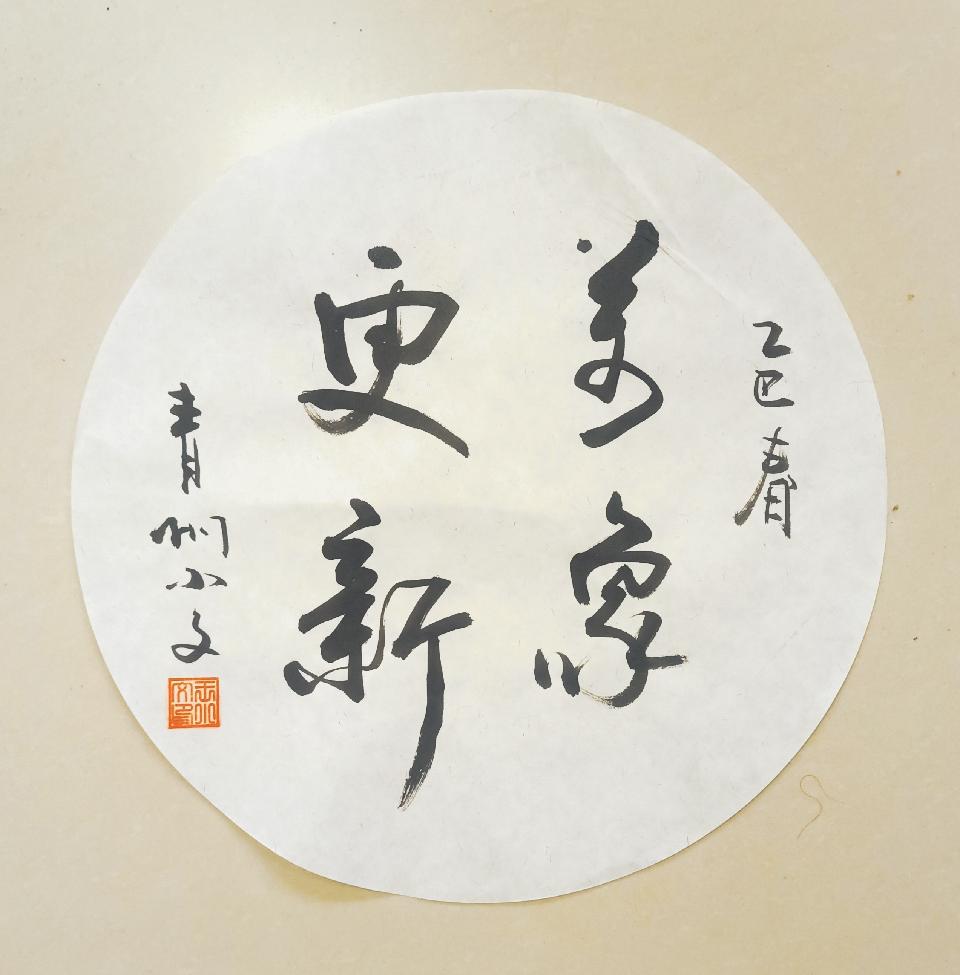 乙巳春
萬象
更新
青州小文